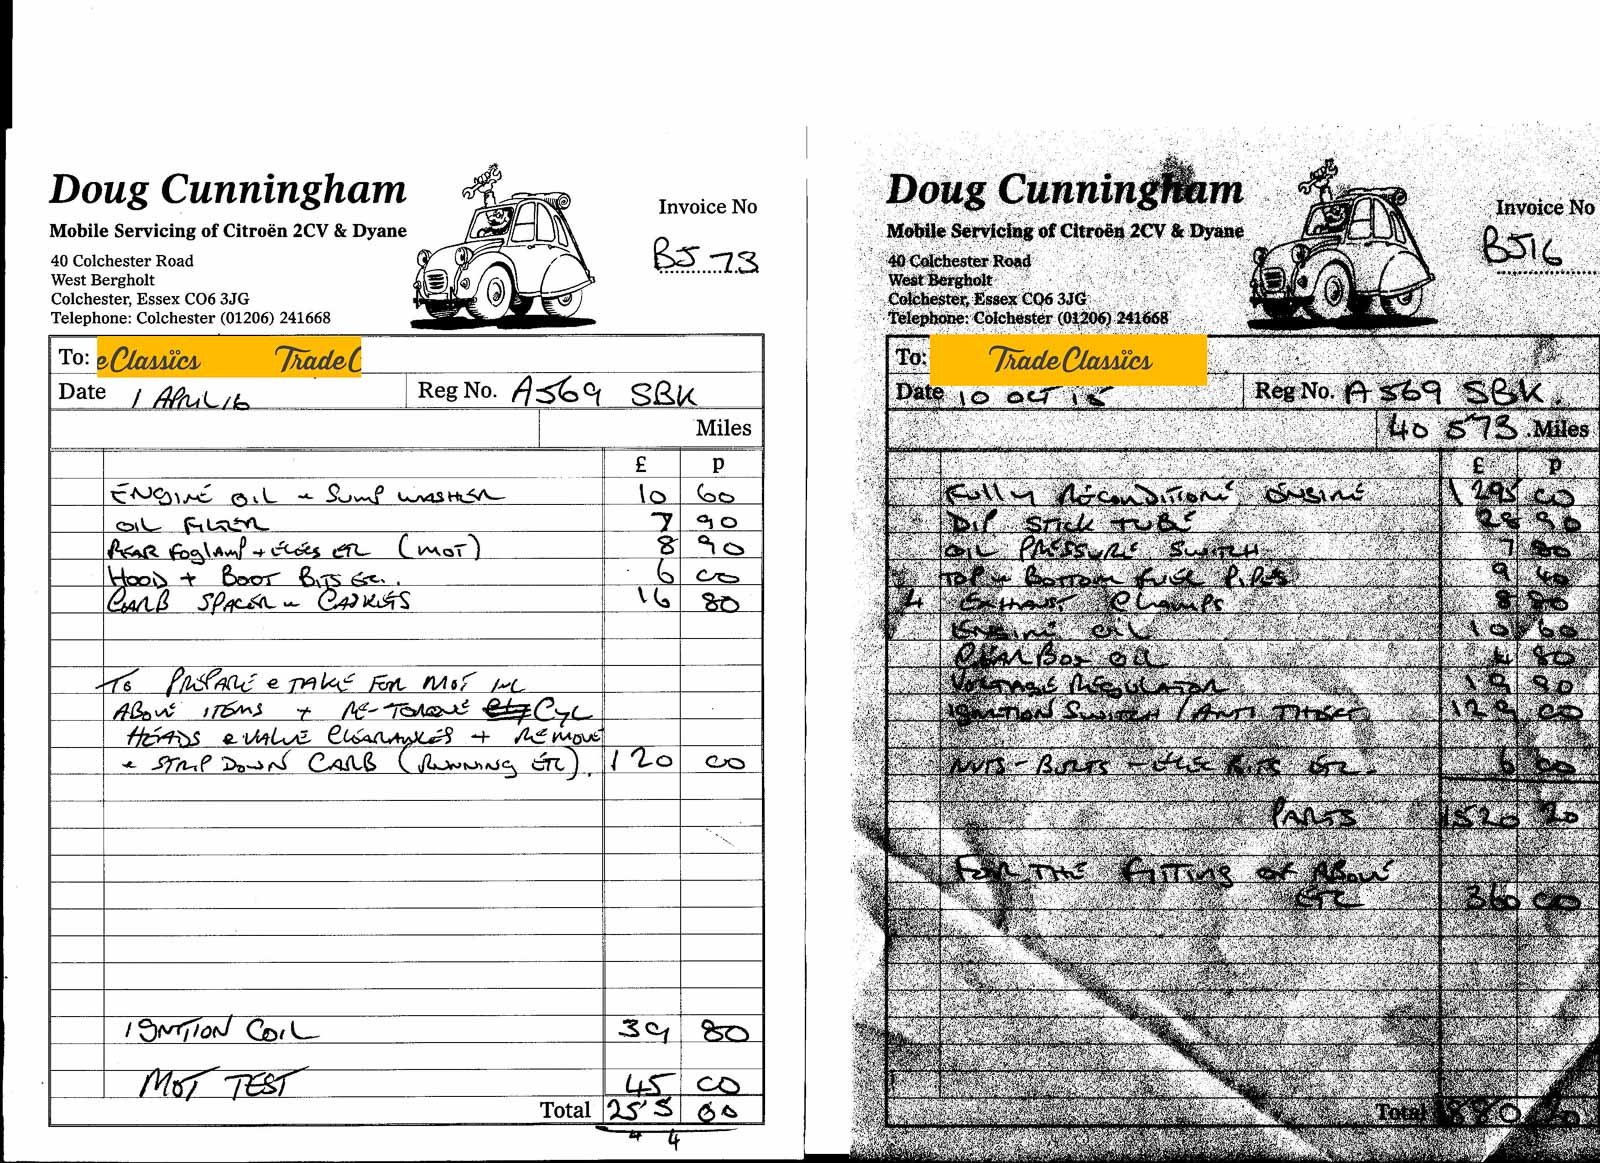 Doug Cunningham
Mobile Servicing of Citroën 2CV & Dyane
40 Colchester Road
West Bergholt
Colchester, Essex CO6 3JG
Telephone: Colchester (01206) 241668
Invoice No
BJ 73
To: eClassics TradeC
Date 1 APRIL 16 Reg No. A569 SBK
Miles
£ p
ENGINE OIL & SUMP WASHER 10 60
OIL FILTER 7 90
REAR FOGLAMP + ELECS ETC (MOT) 8 90
HOOD + BOOT BITS ETC. 6 00
CARB SPACER & GASKETS 16 80
TO PREPARE & TAKE FOR MOT INC
ABOVE ITEMS + RE-TORQUE CYL
HEADS & VALVE CLEARANCES + REMOVE
& STRIP DOWN CARB (RUNNING ETC). 120 00
IGNITION COIL 39 80
MOT TEST 45 00
Total 255 00
Doug Cunningham
Mobile Servicing of Citroën 2CV & Dyane
40 Colchester Road
West Bergholt
Colchester, Essex CO6 3JG
Telephone: Colchester (01206) 241668
Invoice No
BJ16
To: TradeClassics
Date 10 OCT 15 Reg No. A569 SBK.
40 573 Miles
£ p
FULLY RECONDITIONE ENGINE 1295 00
DIP STICK TUBE 28 90
OIL PRESSURE SWITCH 7 80
TOP & BOTTOM FUEL PIPES 9 40
4 EXHAUST CLAMPS 8 80
ENGINE OIL 10 60
GEARBOX OIL 4 80
VOLTAGE REGULATOR 19 90
IGNITION SWITCH (ANTI THEFT) 129 00
NUTS - BOLTS - ELEC BITS ETC. 6 00
PARTS 1520 20
FOR THE FITTING OF ABOVE
ETC 360 00
Total 1880.20